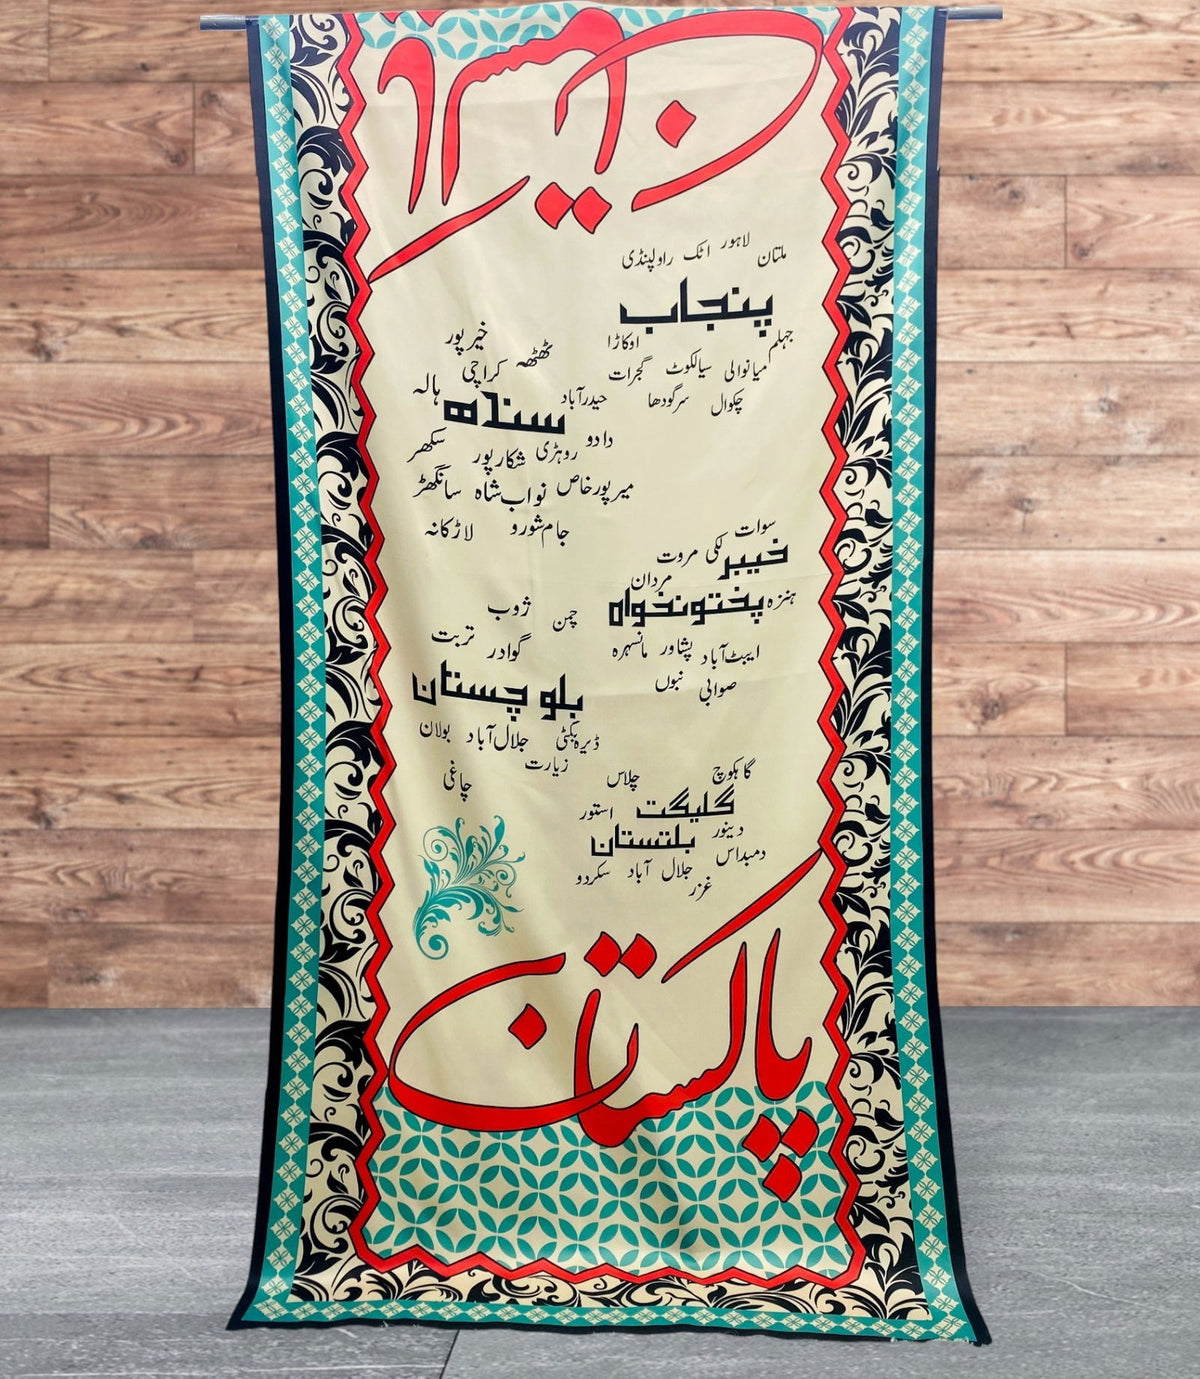 پاکستان
ملتان لاہور اٹک راولپنڈی
پنجاب
جہلم اوکاڑا
میانوالی سیالکوٹ گجرات
چکوال سرگودھا
خیرپور
ٹھٹھہ کراچی
حیدرآباد ہالہ
سندھ
دادو روہڑی شکارپور سکھر
میرپورخاص نواب شاہ سانگھڑ
جام شورو لاڑکانہ
سوات
خیبر لکی مروت
مردان
ہنزہ پختونخواہ
ایبٹ آباد پشاور مانسہرہ
صوابی نبوں
چمن ژوب
گوادر تربت
بلوچستان
ڈیرہ بگٹی جلال آباد بولان
زیارت چاغی
گاہکوچ چلاس
گلیگت استور
دینور بلتستان
دمبداس جلال آباد سکردو
غزر
پاکستان